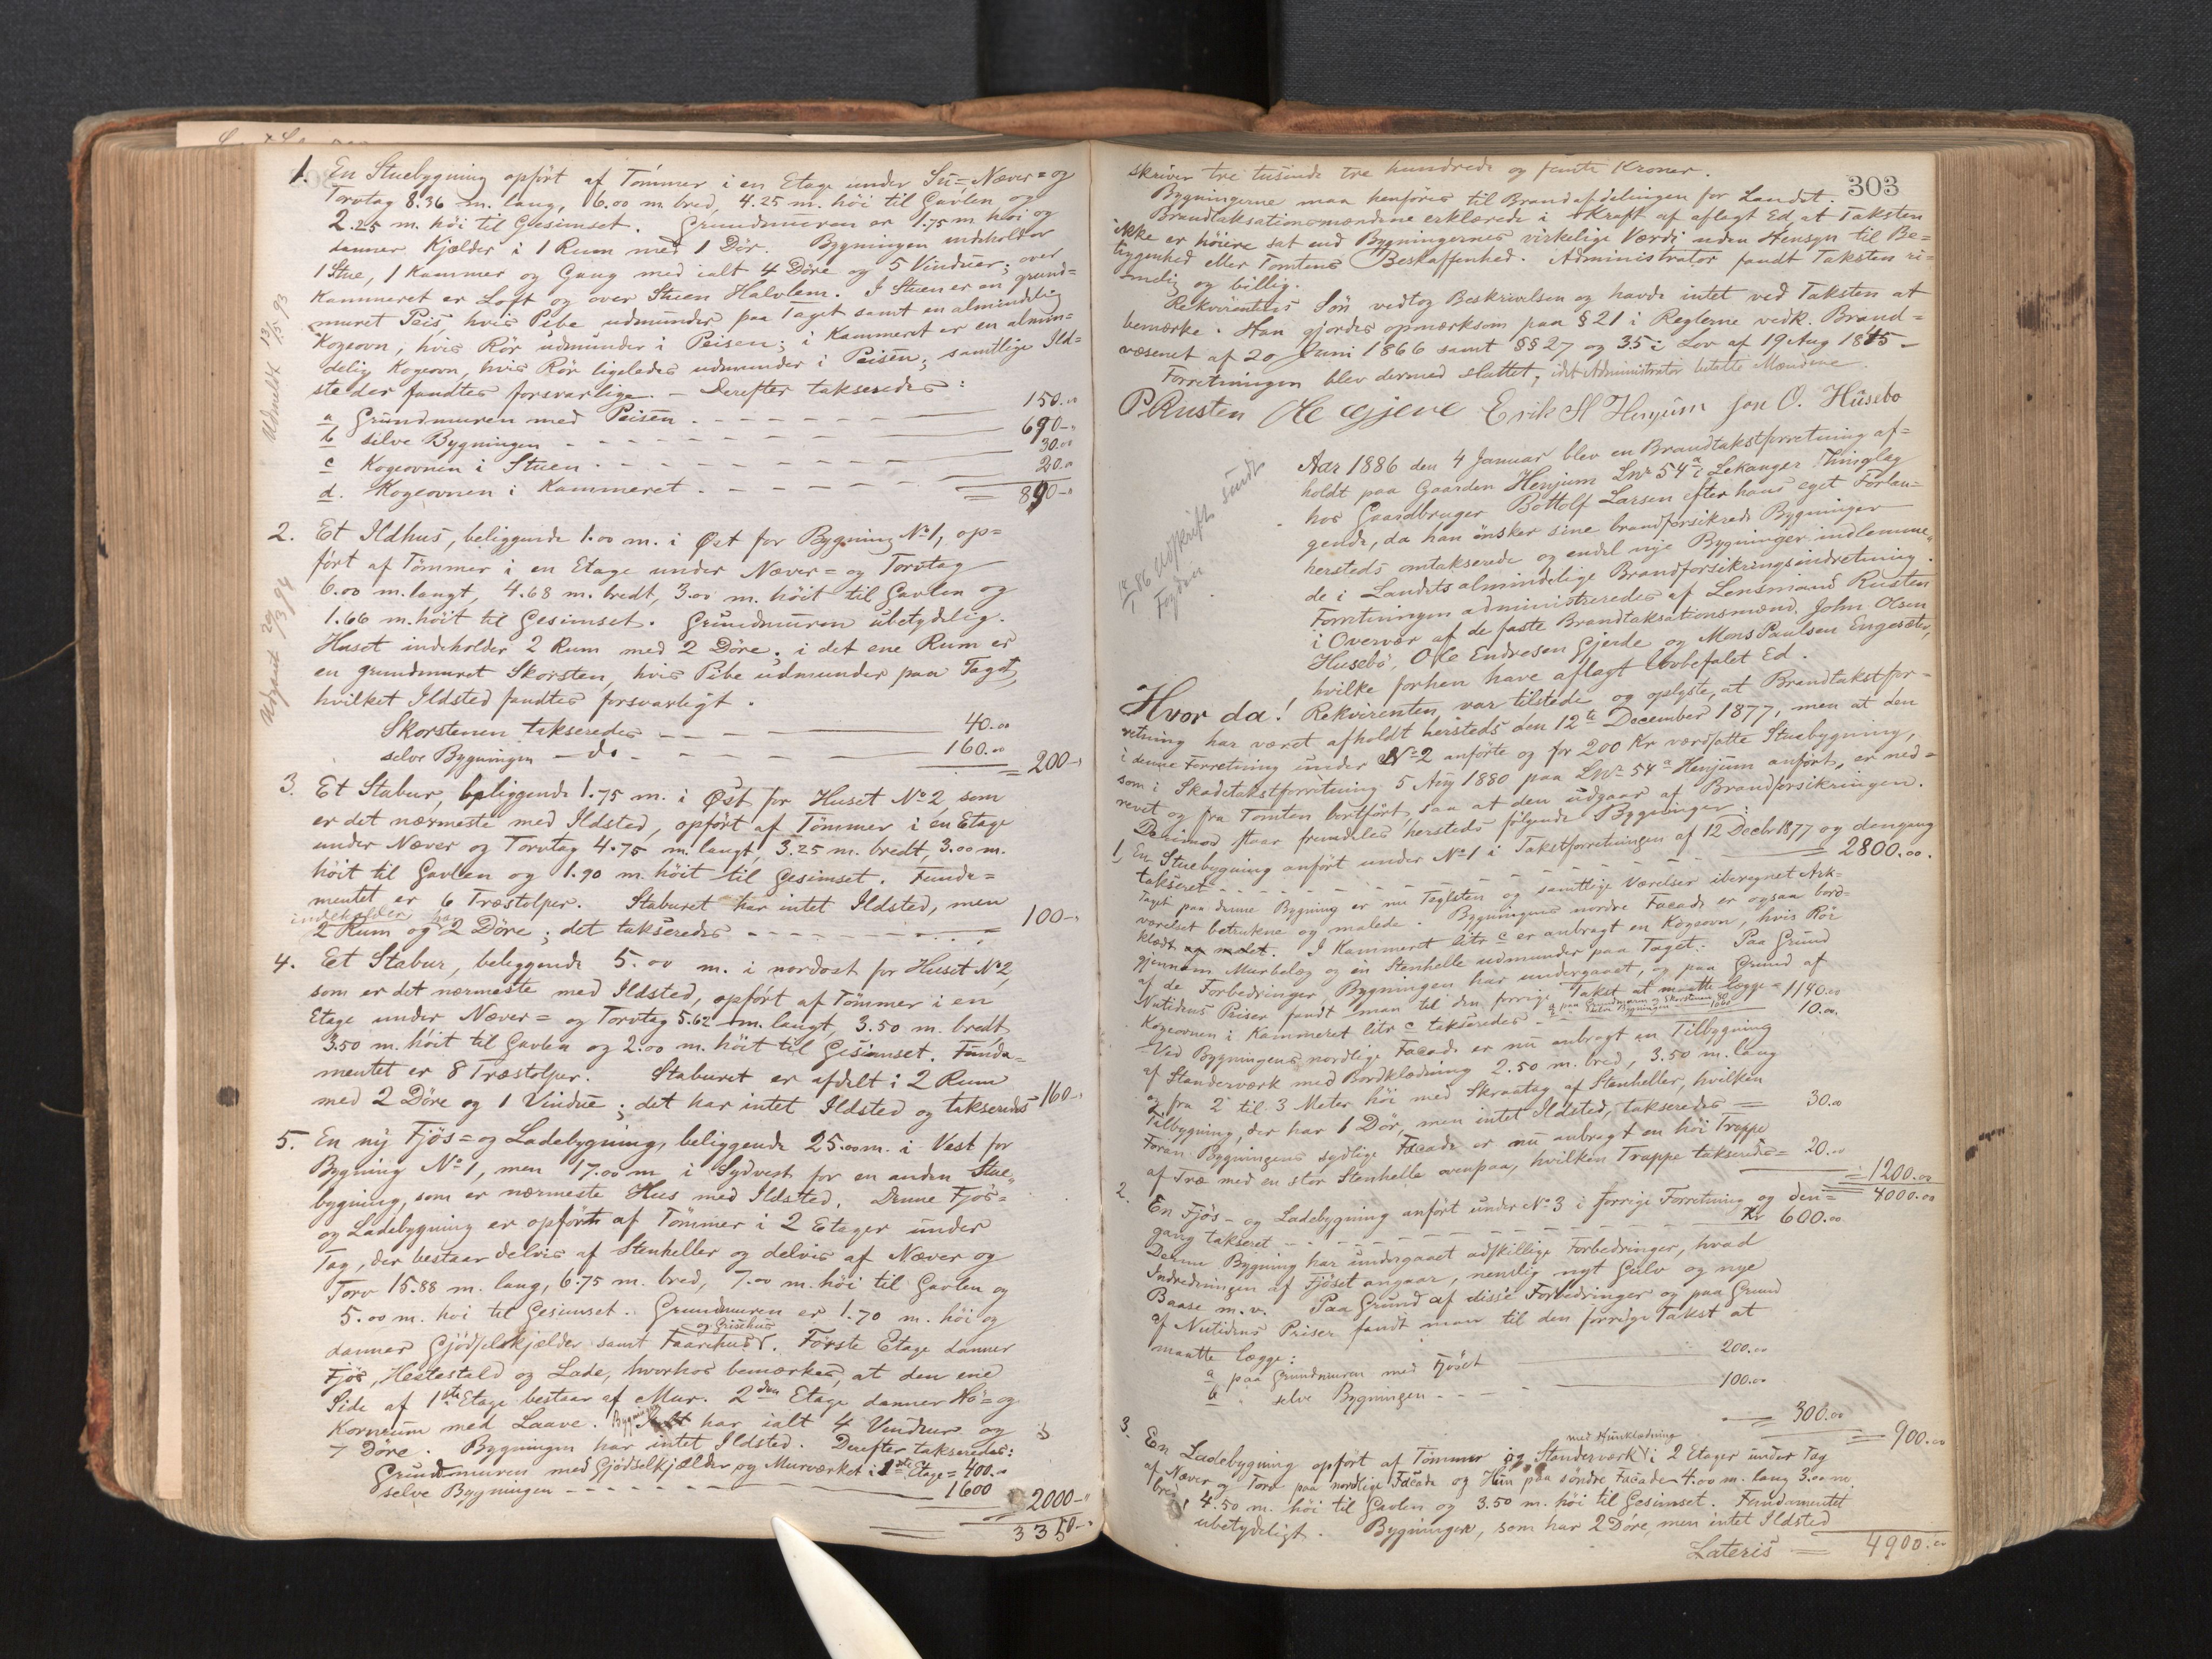 1. En Stuebygning opført af Tømmer i en Etage under Su-, Næver= og
Torvtag 8.36 m. lang, 6.00 m. bred, 4.25 m. høi til Gavlen og
2.25 m. høi til Gesimset. Grundmuren er 1.75 m høi og
danner Kjælder i 1 Rum med 1 Dør. Bygningen indeholder
1 Stue, 1 Kammer og Gang med ialt 4 Døre og 5 Vinduer; over
Kammeret er Loft og over Stuen Halvlem. I Stuen er en grund=
muret Peis, hvis Pibe udmunder paa Taget samt en almindelig
Kogeovn, hvis Rør udmunder i Peisen; i Kammeret er en almin=
delig Kogeovn, hvis Rør ligeledes udmunder i Peisen; samtlige Ild=
steder fandtes forsvarlige. – Derefter takseredes:
a Grundmuren med Peisen - - - 150.00
b selve Bygningen - - - 690-"
c Kogeovnen i Stuen - - - 30.00
d. Kogeovnen i Kammeret - - - 20.00
= 890-"
Udmeldt 13/5 93
2. Et Ildhus, beliggende 1.00 m. i Øst for Bygning No 1, op=
ført af Tømmer i en Etage under Næver= og Torvtag
6.00 m. langt, 4.68 m. bredt, 3.00 m. høit til Gavlen og
1.66 m. høit til Gesimset. Grundmuren ubetydelig.
Huset indeholder 2 Rum med 2 Døre; i det ene Rum er
en grundmuret Skorsten, hvis Pibe udmunder paa Taget,
hvilket Ildsted fandtes forsvarligt.
Skorstenen takseredes - - - 40.00
selve Bygningen - do - - - 160.00
= 200-"
3. Et Stabur, beliggende 1.75 m. i Øst for Huset No 2, som
er det nærmeste med Ildsted, opført af Tømmer i en Etage
under Næver og Torvtag 4.75 m. langt, 3.25 m. bredt, 3.00 m.
høit til Gavlen og 1.90 m. høit til Gesimset. Funda=
mentet er 6 Træstolper. Staburet har intet Ildsted, men
indeholder har
2 Rum og 2 Døre; det takseredes - - - = 100-"
4. Et Stabur, beliggende 5.00 m. i nordost for Huset No 2,
som er det nærmeste med Ildsted, opført af Tømmer i en
Etage under Næver= og Torvtag 5.62 m. langt, 3.50 m. bredt,
3.50 m. høit til Gavlen og 2.00 m. høit til Gesimset. Funda=
mentet er 8 Træstolper. Staburet er afdelt i 2 Rum
med 2 Døre og 1 Vindue; det har intet Ildsted og takseredes 160-"
5. En ny Fjøs= og Ladebygning, beliggende 25.00 m. i Vest for
Bygning No 1, men 17.00 m. i Sydvest for en anden Stue=
bygning, som er nærmeste Hus med Ildsted. Denne Fjøs=
og Ladebygning er opført af Tømmer i 2 Etager under
Tag, der bestaar delvis af Stenheller og delvis af Næver og
Torv 15.88 m. lang, 6.75 m. bred, 7.00 m. høi til Gavlen og
5.00 m. høi til Gesimset. Grundmuren er 1.70 m. høi og
og Grisehus
danner Gjødselskjælder samt Faarehus. Første Etage danner
Fjøs, Hestestald og Lade, hvorhos bemærkes, at den ene
Side af 1ste Etage bestaar af Mur. 2den Etage danner Hø= og
Kornrum med Laave. Bygningen har ialt 4 Vinduer og
7 Døre. Bygningen har intet Ildsted. Derefter takseredes:
Grundmuren med Gjødselkjælder og Murværket i 1ste Etage = 400.00
selve Bygningen - - - 1600
2000-"
= 3350-"
303
skriver tre tusinde tre hundrede og femti Kroner.
Bygningerne maa henføres til Brandafdelingen for Landet.
Brandtaksationsmændene erklærede i Kraft af aflagt Ed, at Taksten
ikke er høiere sat end Bygningernes virkelige Værdi uden Hensyn til Be=
liggenhed eller Tomtens Beskaffenhed. Administrator fandt Taksten ri=
melig og billig.
Rekvirentens Søn vedtog Beskrivelsen og havde intet ved Taksten at
bemærke. Han gjordes opmærksom paa § 21 i Reglerne vedk. Brand=
væsenet af 20 Juni 1866 samt §§ 27 og 35 i Lov af 19 Aug 1845 –
Forretningen blev dermed sluttet, idet Administrator betalte Mændene.
P. Rusten Ole Gjerde Erik H Henjum Jon O. Husebø
Aar 1886 den 4 Januar blev en Brandtakstforretning af=
holdt paa Gaarden Henjum Lnr 54a i Lekanger Thinglag
hos Gaardbruger Bottolf Larsen efter hans eget Forlan=
gende, da han ønsker sine brandforsikrede Bygninger
hersteds omtakserede og endel nye Bygninger indlemme=
de i Landets almindelige Brandforsikringsindretning.
Forretningen administreredes af Lensmand Rusten
i Overvær af de faste Brandtaksationsmænd John Olsen
Husebø, Ole Endresen Gjerde og Mons Paulsen Engesæter,
hvilke forhen have aflagt lovbefalet Ed.
Udskrift sendt
Fogden
Hvor da! Rekvirenten var tilstede og oplyste, at Brandtakstfor=
retning har været afholdt hersteds den 12te December 1877, men at den
i denne Forretning under No 2 anførte og for 200 Kr værdsatte Stuebygning,
som i Skadetakstforretning 5 Aug 1880 paa Lnr 54a Henjum anført, er ned=
revet og fra Tomten bortført, saa at den udgaar af Brandforsikringen.
Derimod staar fremdeles hersteds følgende Bygninger:
1, En Stuebygning anført under No 1 i Takstforretningen af 12 Decbr 1877 og dengang
takseret - - - = 2800.00.
Taget paa denne Bygning er nu Taglsten og samtlige Værelser iberegnet Ark=
værelset betrukne og malede. Bygningens nordre Facade er ogsaa bord=
klædt og malet. I Kammeret litr c er anbragt en Kogeovn, hvis Rør
gjennem Murbelæg og en Stenhelle udmunder paa Taget. Paa Grund
af de Forbedringer, Bygningen har undergaaet, og paa Grund af
Nutidens Priser fandt man til den forrige Takst at maatte lægge = 1140.00
a paa Grundmuren og Skorstenen 80
selve Bygningen 1060
Kogeovnen i Kammeret litr c takseredes - 10.00.
Ved Bygningens nordlige Facade er nu anbragt en Tilbygning
af Standerværk med Bordklædning 2.50 m. bred, 3.50 m. lang
og fra 2 til 3 Meter høi med Skraatag af Stenheller, hvilken
Tilbygning, der har 1 Dør, men intet Ildsted, takseredes = 30.00
Foran Bygningens sydlige Facade er nu anbragt en høi Trappe
af Træ med en stor Stenhelle ovenpaa, hvilken Trappe takseredes = 20.00
= 1200.00
= 4000.00
2. En Fjøs- og Ladebygning anført under No 3 i forrige Forretning og den=
gang takseret - - - Kr 600.00
Denne Bygning har undergaaet adskillige Forbedringer, hvad
Indredningen af Fjøset angaar, nemlig nyt Gulv og nye
Baase m.v. Paa Grund af disse Forbedringer og paa Grund
af Nutidens Priser fandt man til den forrige Takst at
maatte lægge:
a paa Grundmuren med Fjøset 200.00
b selve Bygningen - - - 100.00
= 300.00
= 900.00
med Hunklædning
3. En Ladebygning opført af Tømmer og Standerværk i 2 Etager under Tag
af Næver og Torv paa nordlige Facade og Hun paa søndre Facade 4.00 m. lang 3.00 m
bred, 4.50 m. høi til Gavlen og 3.50 m. høi til Gesimset. Fundamentet
ubetydeligt. Bygningen, som har 2 Døre, men intet Ildsted
Lateris = 4900.00